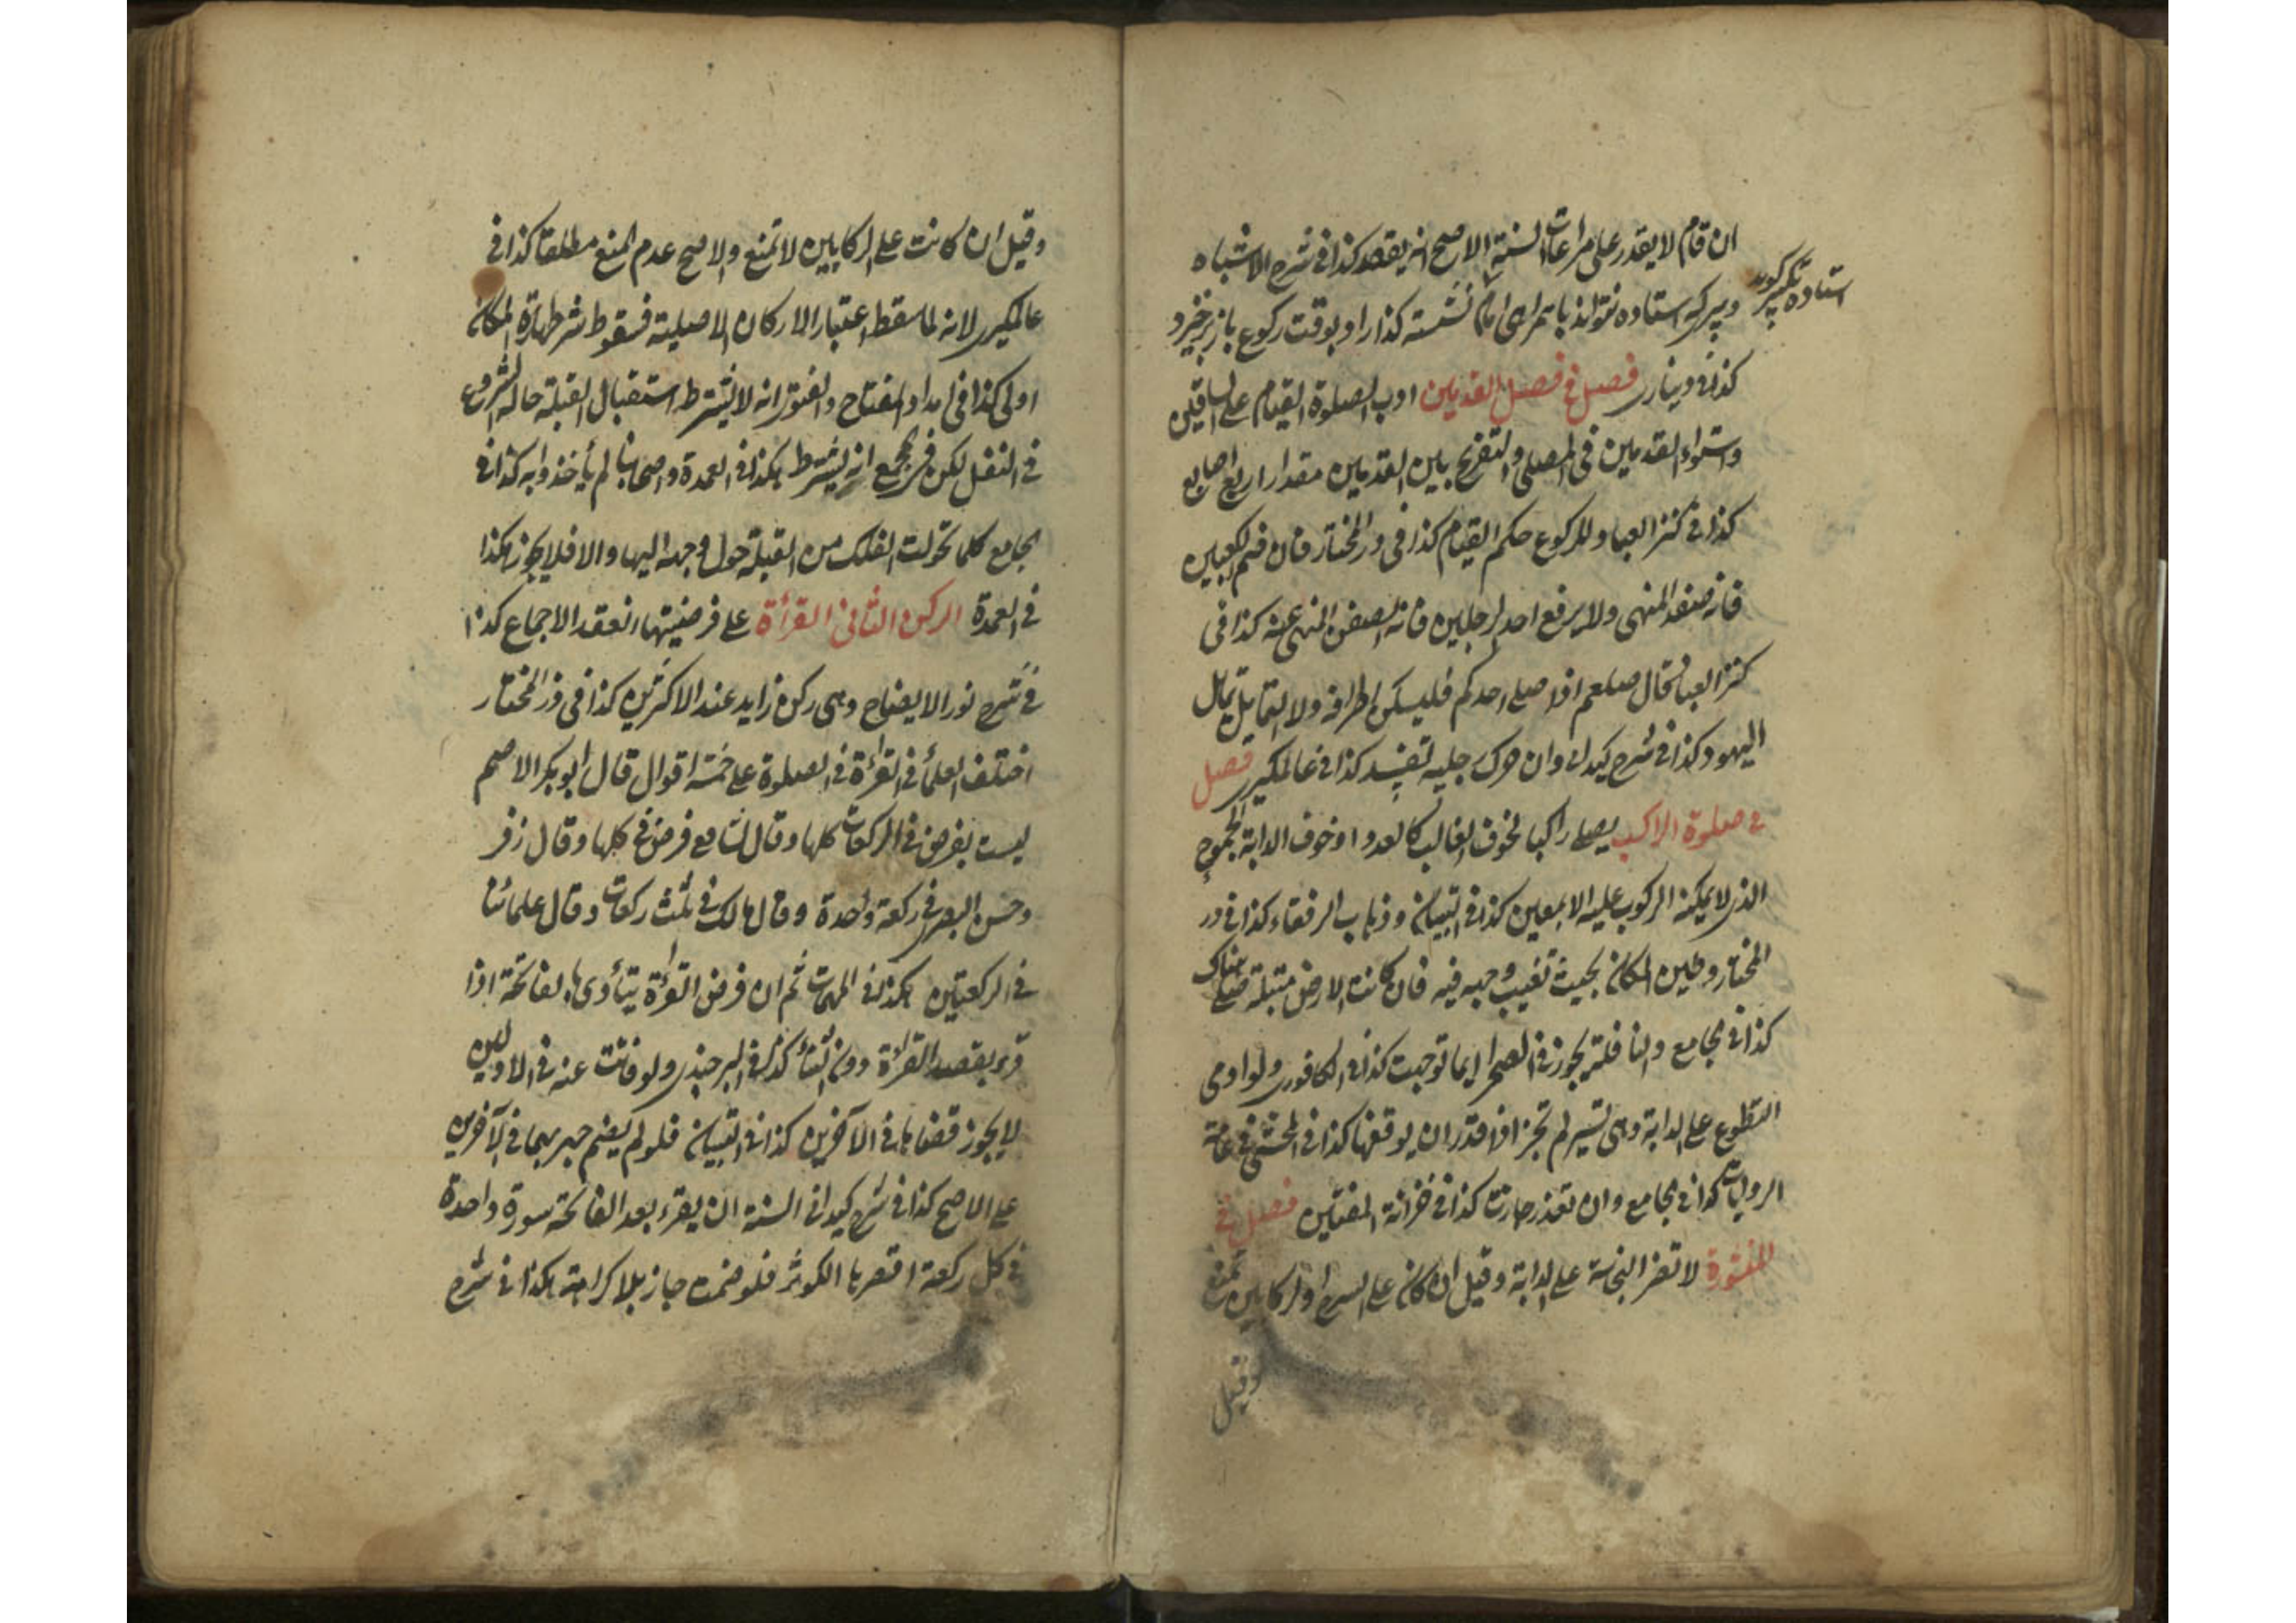 ان قام لا يقدر على مراعات السنة الاصح انه يقعد كذا فى شرح الاشباه
استاده تكبير كويد
و پير كه استاده نتواند با امام نشسته كذارد و بوقت ركوع باز برخيزد
كذا فى دينارى فصل فى فصل القدمين ادب الصلوة القيام على الساقين
واستواء القدمين فى المصلى والتفريج بين القدمين مقدار اربع اصابع
كذا فى كنز العباد وللركوع حكم القيام كذا فى در المختار فان ضم الكعبين
فانه صفد المنهى ولا يرفع احد الرجلين فانه الصفن المنهى عنه كذا فى
كنز العباد قال صلعم اذا صلى احدكم فليسكن اطرافه ولا يتمايل تمايل
اليهود كذا فى شرح كيدانى وان حرك رجليه تفسد كذا فى عالمكيرى فصل
فى صلوة الراكب يصلى راكبا لخوف الغالب كالعدو او خوف الدابة الجموح
الذى لا يمكنه الركوب عليه الا بمعين كذا فى التبيان وذهاب الرفقاء كذا فى در
المختار وطين المكان بحيث تغيب وجهه فيه فان كانت الارض مبتلة صلى هناك
كذا فى الجامع والنافلة يجوز فى الصحرا ايما توجهت كذا فى الكافورى ولو اومى
التطوع على الدابة وهى تسير لم تجز اذا قدر ان يوقفها كذا فى المحشى فى عامة
الروايات كذا فى الجامع وان تعذر جازت كذا فى خزانة المفتين فصل فى
لا تضر النجاسة على الدابة وقيل ان كان على السرج او الركابين تمنع
وقيل
وقيل ان كانت على الركابين لا تمنع والاصح عدم المنع مطلقا كذا فى
عالمكيرى لانه لما سقط اعتبار الاركان الاصلية فسقوط شرط طهارة المكان
اولى كذا فى امداد الفتاح والفتوى انه لا يشترط استقبال القبلة حالة الشروع
فى النفل لكن فى المجمع انه يشترط هكذا فى العمدة واصحابنا لم يأخذوا به كذا فى
الجامع كلما تحولت الفلك من القبلة حول وجهه اليها والا فلا يجوز هكذا
فى العمدة الركن الثانى القرأة على فرضيتها انعقد الاجماع كذا
فى شرح نور الايضاح وهى ركن زايد عند الاكثرين كذا فى در المختار
اختلف العلمأ فى القرأة فى الصلوة على خمسة اقوال قال ابو بكر الاصم
ليست بفرض فى الركعات كلها وقال الشافعى فرض فى كلها وقال زفر
وحسن البصرى فى ركعة واحدة وقال مالك فى ثلث ركعات وقال علمائنا
فى الركعتين هكذا فى المهمات ثم ان فرض القرأة يتأدى بالفاتحة اذا
قرء بقصد القرأة دون الثنأ كذا فى البرجندى ولو فاتت عنه فى الاوليين
لا يجوز قضاءها فى الآخرين كذا فى التبيان فلو لم يضم جهر بهما فى الآخرين
على الاصح كذا فى شرح كيدانى السنة ان يقرء بعد الفاتحة سورة واحدة
فى كل ركعة اقصرها الكوثر فلو ضمت جاز بلا كراهة هكذا فى شرح